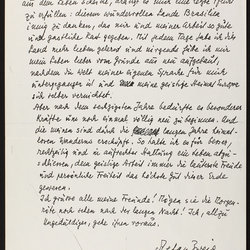 aus dem Leben scheide, drängt es mich eine letzte Pflicht
zu erfüllen: diesem wundervollen Lande Brasilien
innig zu danken, das mir und meiner Arbeit so gute
und gastliche Rast gegeben. Mit jedem Tage habe ich dies
Land mehr lieben gelernt und nirgends hätte ich mir
mein Leben lieber vom Grunde aus neu aufgebaut,
nachdem die Welt meiner eigenen Sprache für mich
untergegangen ist und meine geistige Heimat Europa
sich selber vernichtet.
Aber nach dem sechzigsten Jahre bedürfte es besonderer
Kräfte um noch einmal völlig neu zu beginnen. Und
die meinen sind durch die langen Jahre heimat-
losen Wanderns erschöpft. So halte ich es für besser,
rechtzeitig und in aufrechter Haltung ein Leben abzu-
schliessen, dem geistige Arbeit immer die lauterste Freude
und persönliche Freiheit das höchste Gut dieser Erde
gewesen.
Ich grüsse alle meine Freunde! Mögen sie die Morgen-
röte noch sehen nach der langen Nacht! Ich, allzu
Ungeduldiger, gehe ihnen voraus.
Stefan Zweig